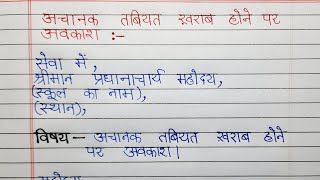 अचानक तबियत ख़राब होने पर
अवकाश :-
सेवा में,
श्रीमान प्रधानाचार्य महोदय,
(स्कूल का नाम),
(स्थान),
विषय – अचानक तबियत ख़राब होने
पर अवकाश।
महोदय